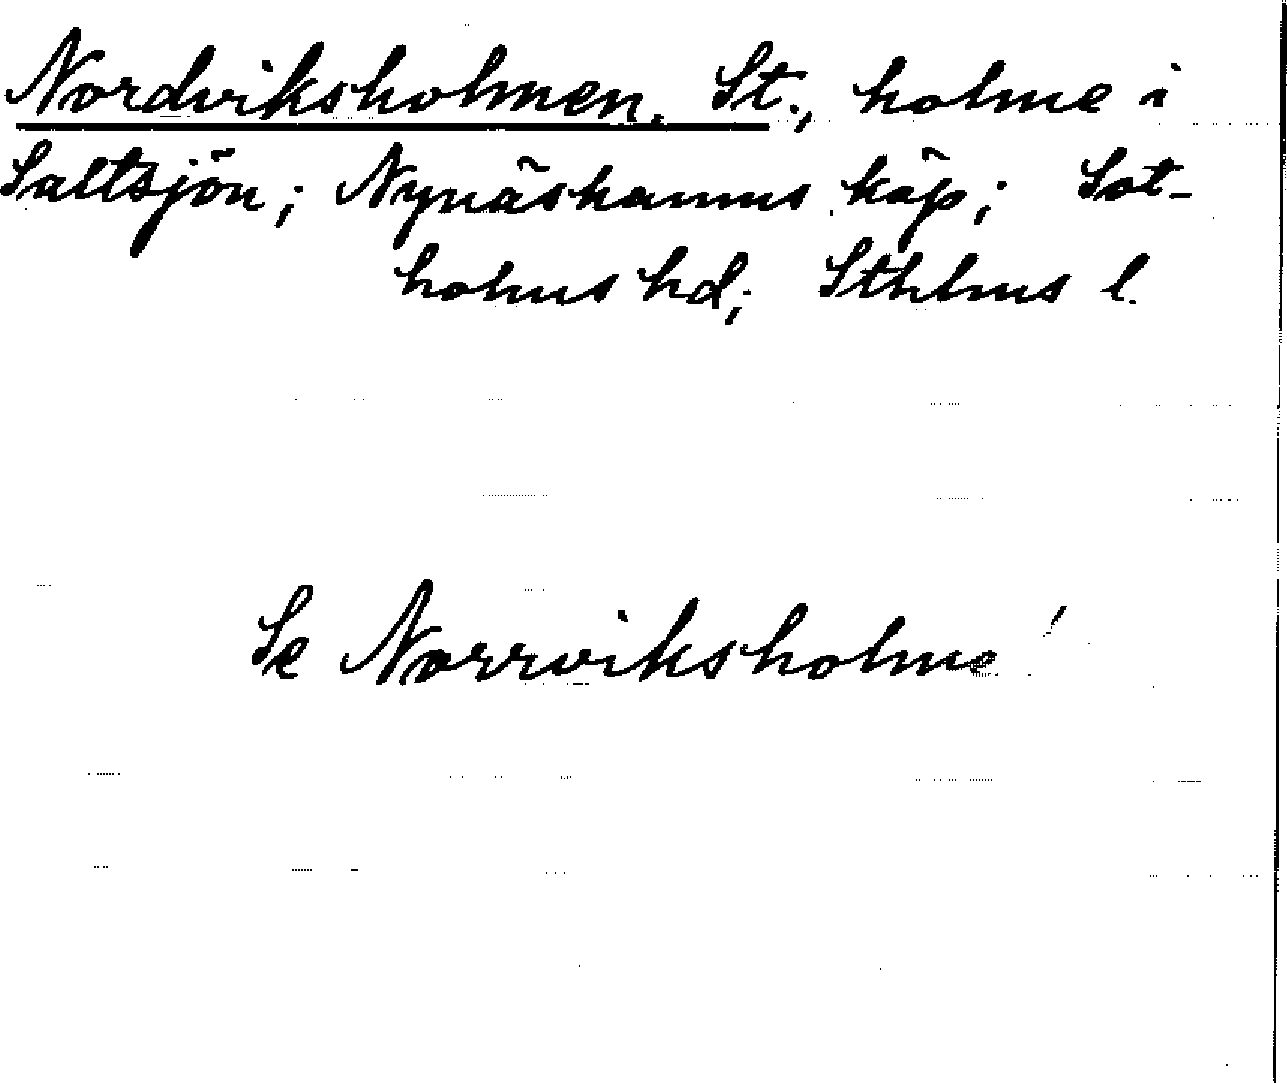 Nordviksholmen. St., holme i
Saltsjön; Nynäshamns köp; Sot-
holms hd; Sthlms l.
Se Norrviksholme!